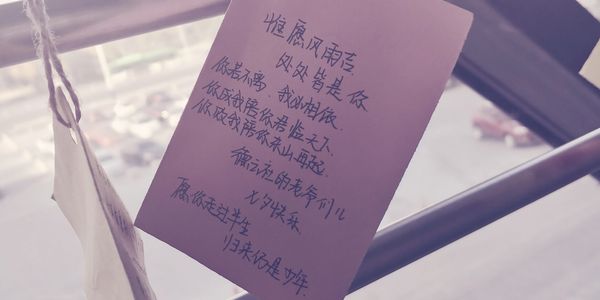 惟愿风雨吉
处处皆是你
你若不离，我必相依.
你成我陪你君临天下
你败我陪你东山再起.
德云社的老爷们儿
七夕快乐
愿你走过半生
归来仍是少年.